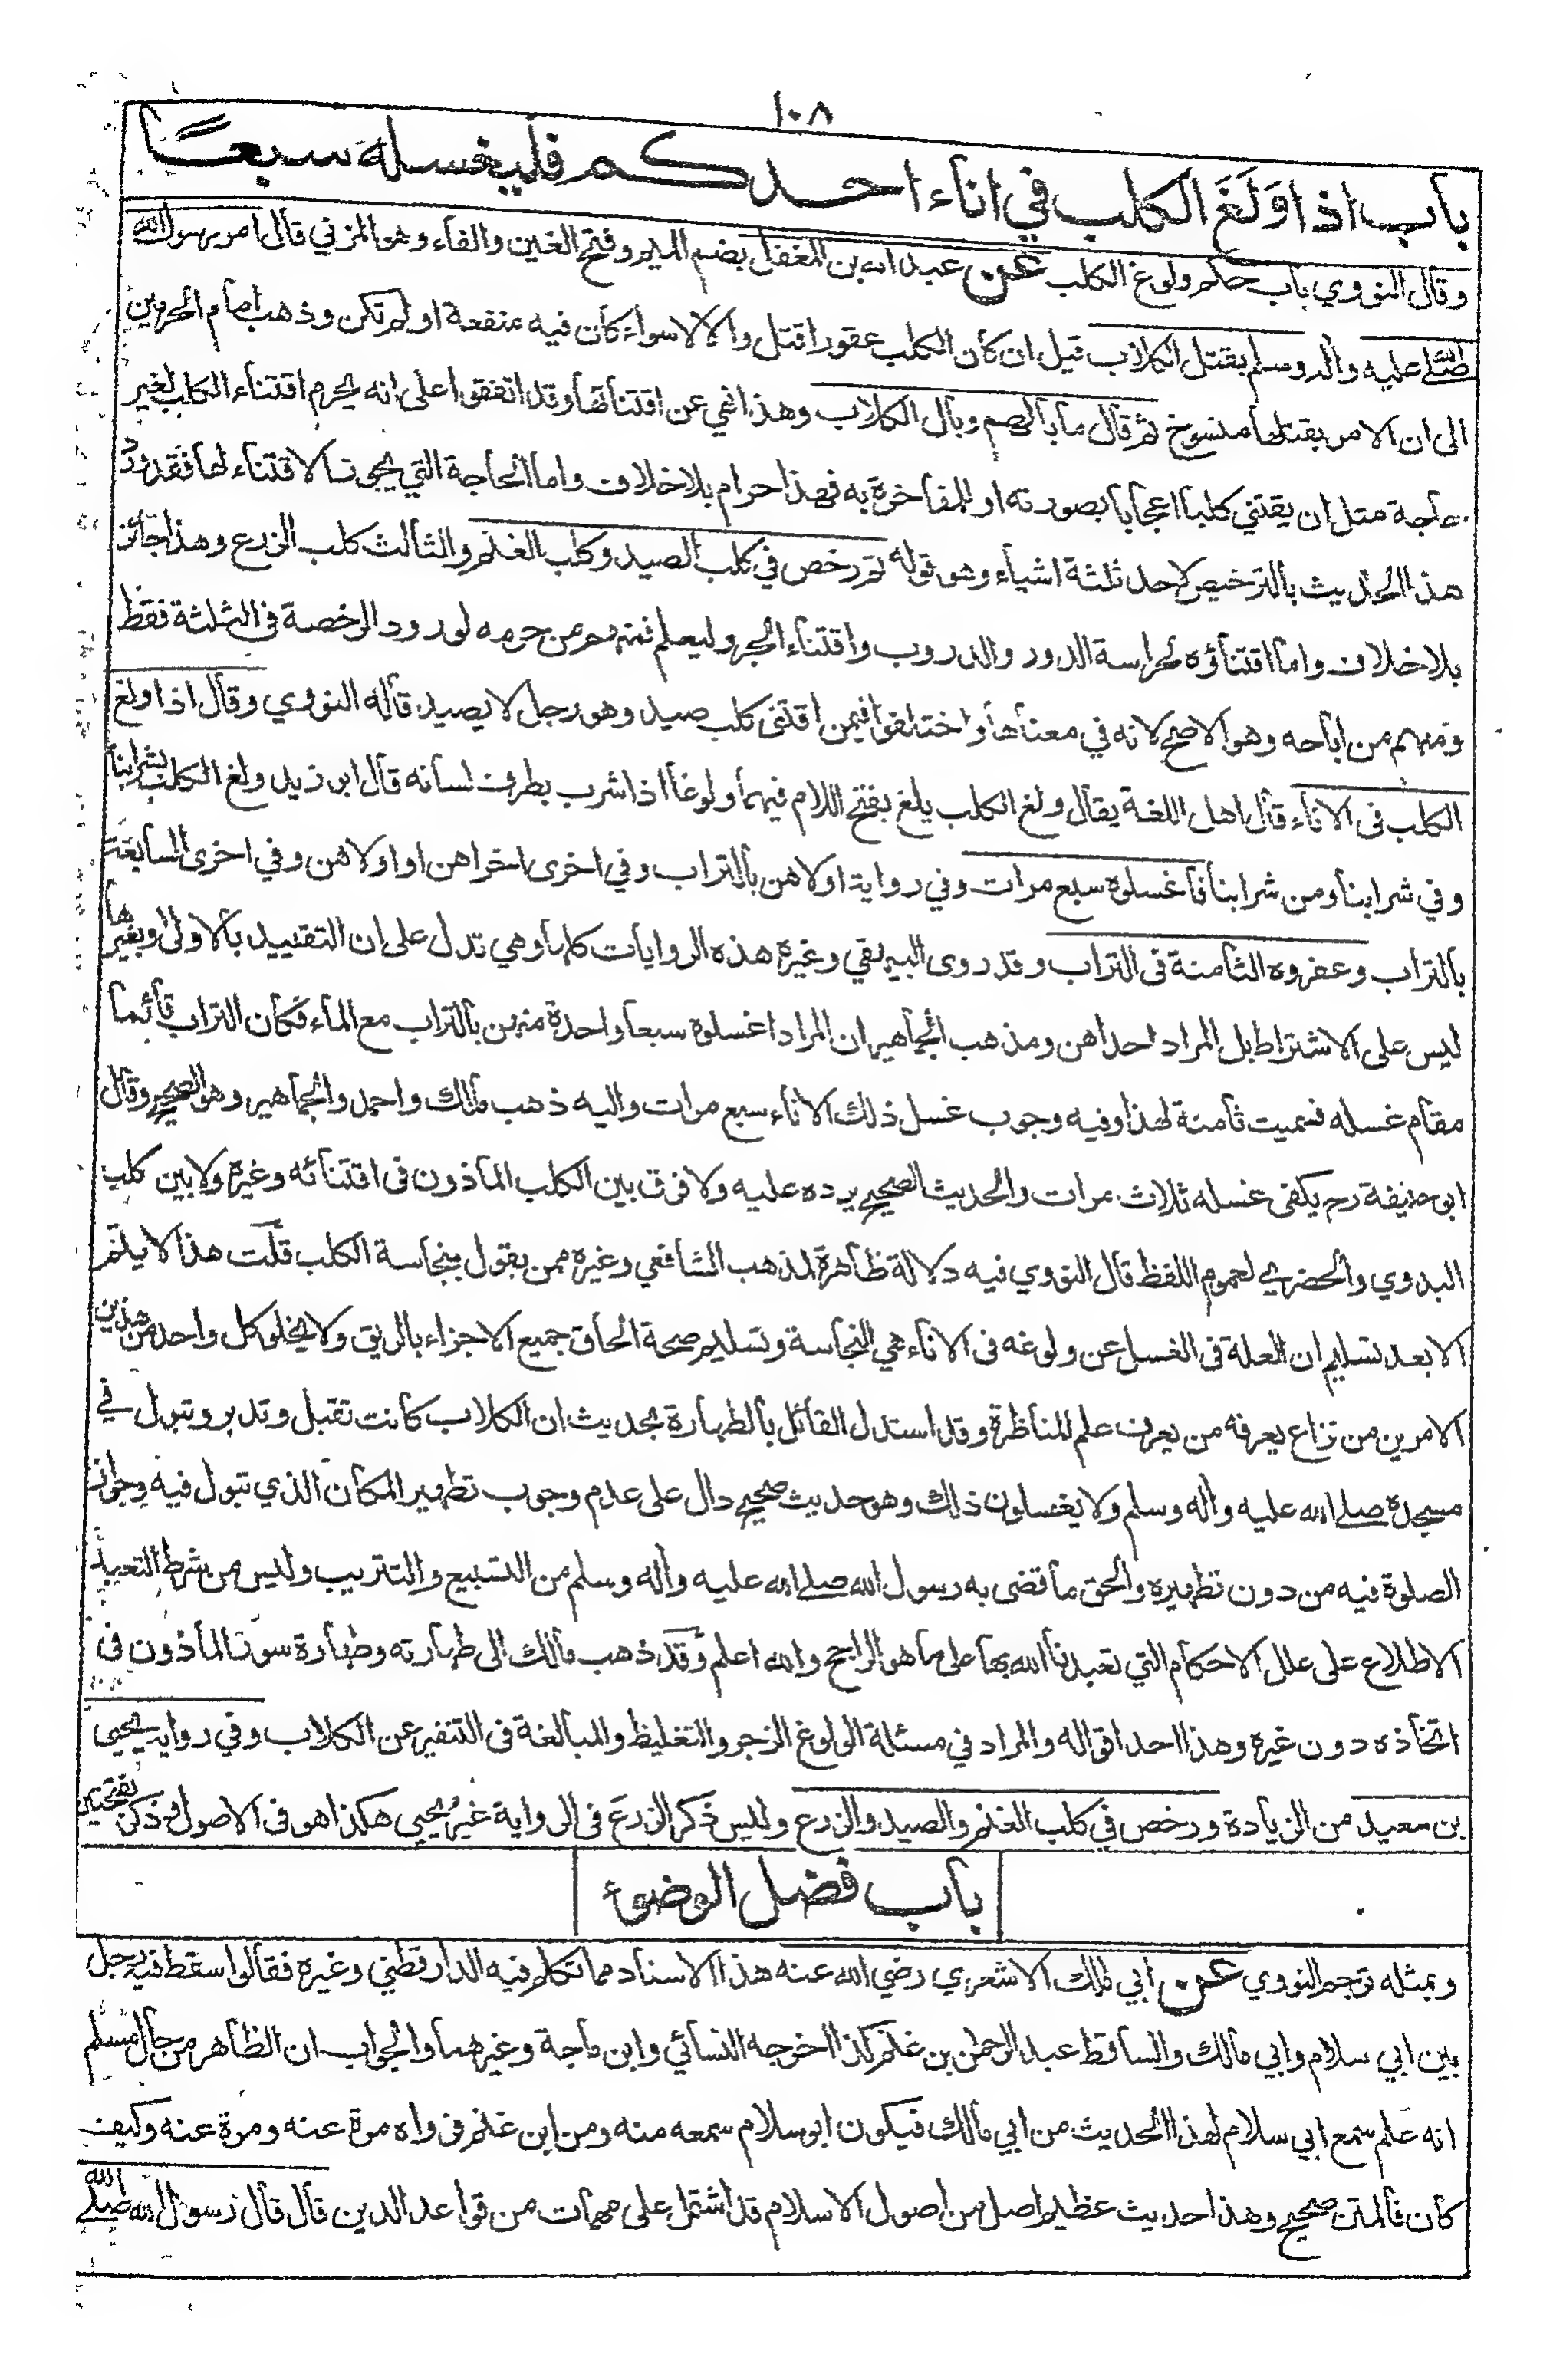 ١٠٨
باب اذا وَلَغَ الكلب في اناء احدكم فليغسله سبعًا
وقال النووي باب حكم ولوغ الكلب عن عبد الله بن المغفل بضم الميم وفتح الغين والفاء وهو المزني قال امر رسول الله
صلى الله عليه واله وسلم بقتل الكلاب قيل ان كان الكلب عقورا قتل والا لا سواء كان فيه منفعة او لم تكن وذهب امام الحرمين
الى ان الامر بقتلها منسوخ ثم قال ما بالهم وبال الكلاب وهذا نهي عن اقتنائها وقد اتفقوا على انه يحرم اقتناء الكلب لغير
حاجة مثل ان يقتني كلبا اعجابا بصورته او للمفاخرة به فهذا حرام بلا خلاف واما الحاجة التي يجوز الاقتناء لها فقد ورد
هذا الحديث بالترخيص لاحد ثلثة اشياء وهو قوله ثم رخص في كلب الصيد وكلب الغنم والثالث كلب الزرع وهذا جائز
بلا خلاف واما اقتناؤه لحراسة الدور والدروب واقتناء الجرو ليعلم فمنهم من حرمه لورود الرخصة فى الثلثة فقط
ومنهم من اباحه وهو الاصح لانه في معناها واختلفوا فيمن اقتنى كلب صيد وهو رجل لا يصيد قاله النووي وقال اذا ولغ
الكلب فى الاناء قال اهل اللغة يقال ولغ الكلب يلغ بفتح اللام فيهما ولوغا اذا شرب بطرف لسانه قال ابو زيد ولغ الكلب بشرابنا
وفي شرابنا ومن شرابنا فاغسلوه سبع مرات وفي رواية اولاهن بالتراب وفي اخرى اخراهن او اولاهن وفي اخرى السابعة
بالتراب وعفروه الثامنة فى التراب وقد روى البيهقي وغيره هذه الروايات كلها وهي تدل على ان التقييد بالاولى او بغيرها
ليس على الاشتراط بل المراد احداهن ومذهب الجماهير ان المراد اغسلوه سبعا واحدة منهن بالتراب مع الماء فكان التراب قائما
مقام غسله فسميت ثامنة لهذا وفيه وجوب غسل ذلك الاناء سبع مرات واليه ذهب مالك واحمد والجماهير وهو الصحيح وقال
ابو حنيفة رح يكفى غسله ثلاث مرات والحديث الصحيح يرده عليه ولا فرق بين الكلب الماذون فى اقتنائه وغيره ولا بين كلب
البدوي والحضري لعموم اللفظ قال النووي فيه دلالة ظاهرة لمذهب الشافعي وغيره ممن يقول بنجاسة الكلب قلت هذا لا يتم
الا بعد تسليم ان العلة فى الغسل عن ولوغه فى الاناء هي النجاسة وتسليم صحة الحاق جميع الاجزاء بالريق ولا يخلو كل واحد من هذين
الامرين من نزاع يعرفه من يعرف علم المناظرة وقد استدل القائل بالطهارة بحديث ان الكلاب كانت تقبل وتدبر وتبول في
مسجده صلى الله عليه واله وسلم ولا يغسلون ذلك وهو حديث صحيح دال على عدم وجوب تطهير المكان الذي تبول فيه وجواز
الصلوة فيه من دون تطهيره والحق ما قضى به رسول الله صلى الله عليه واله وسلم من التسبيع والتتريب وليس من شرط التعبد
الاطلاع على علل الاحكام التي تعبدنا الله بها على ما هو الراجح والله اعلم وقد ذهب مالك الى طهارته وطهارة سور الماذون فى
اتخاذه دون غيره وهذا احد اقواله والمراد في مسئلة الولوغ الزجر والتغليظ والمبالغة فى التنفير عن الكلاب وفي رواية يحيى
بن سعيد من الزيادة ورخص في كلب الغنم والصيد والزرع وليس ذَكر الزرعَ فى الرواية غيرُ يحيى هكذا هو فى الاصول وذكر بفتحتين
باب فضل الوضوء
وبمثله ترجم النووي عن ابي مالك الاشعري رضي الله عنه هذا الاسناد مما تكلم فيه الدارقطني وغيره فقالوا سقط فيه رجل
بين ابي سلام وابي مالك والساقط عبد الرحمن بن غنم كذا اخرجه النسائي وابن ماجة وغيرهما والجواب ان الظاهر من حال مسلم
انه علم سمع ابي سلام لهذا الحديث من ابي مالك فيكون ابو سلام سمعه منه ومن ابن غنم فرواه مرة عنه ومرة عنه وكيف
كان فالمتن صحيح وهذا حديث عظيم اصل من اصول الاسلام قد اشتمل على مهمات من قواعد الدين قال قال رسول الله صلى الله